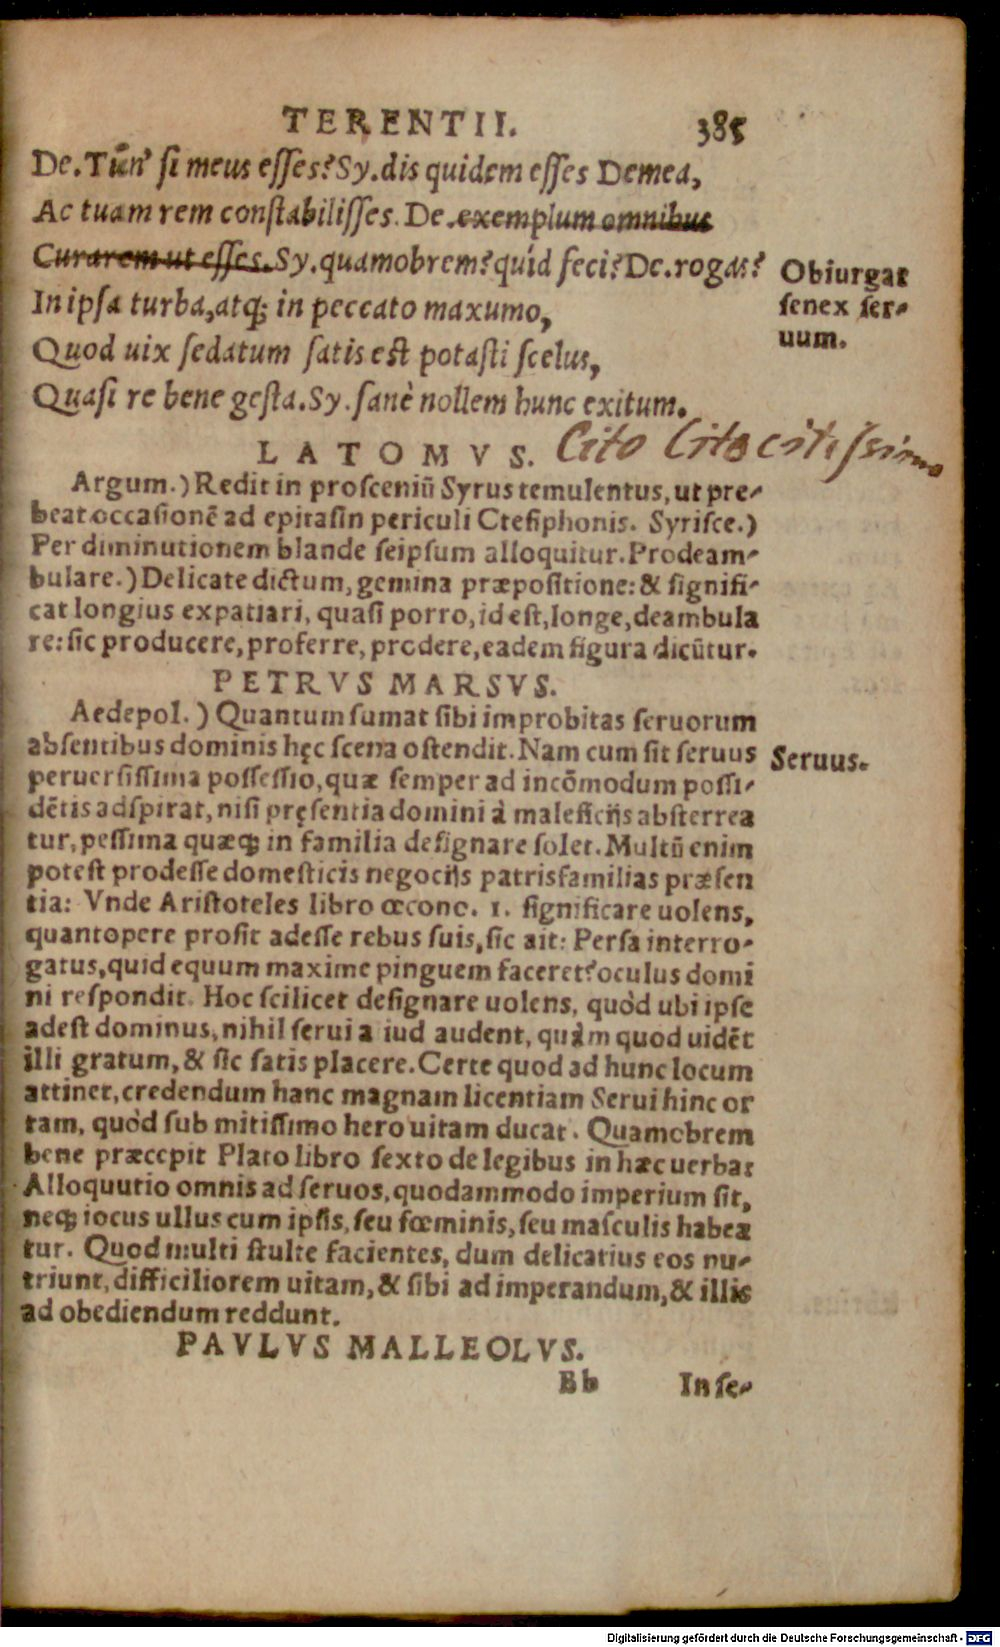 TERENTII. 385
De. Tūn' si meus esses? Sy. dis quidem esses Demea,
Ac tuam rem constabilisses. De. exemplum omnibus
Curarem ut esses. Sy. quamobrem? quid feci? De. rogas?
In ipsa turba, atq; in peccato maxumo,
Quod uix sedatum satis est potasti scelus,
Quasi re bene gesta. Sy. sanè nollem hunc exitum.
Obiurgat
senex ser-
uum.
LATOMVS.
Cito Cito citissimo
Argum.) Redit in prosceniū Syrus temulentus, ut pre-
beat occasionē ad epitasin periculi Ctesiphonis. Syrisce.)
Per diminutionem blande seipsum alloquitur. Prodeam-
bulare.) Delicate dictum, gemina præpositione: & signifi-
cat longius expatiari, quasi porro, id est, longe, deambula
re: sic producere, proferre, prodere, eadem figura dicūtur.
PETRVS MARSVS.
Aedepol.) Quantum sumat sibi improbitas seruorum
absentibus dominis hęc scena ostendit. Nam cum sit seruus
peruersissima possessio, quæ semper ad incōmodum possi-
dētis adspirat, nisi pręsentia domini à maleficijs absterrea
tur, pessima quæq; in familia designare solet. Multū enim
potest prodesse domesticis negocijs patrisfamilias præsen
tia: Vnde Aristoteles libro œcono. 1. significare uolens,
quantopere prosit adesse rebus suis, sic ait: Persa interro-
gatus, quid equum maxime pinguem faceret? oculus domi
ni respondit. Hoc scilicet designare uolens, quòd ubi ipse
adest dominus, nihil serui a iud audent, quàm quod uidēt
illi gratum, & sic satis placere. Certe quod ad hunc locum
attinet, credendum hanc magnam licentiam Serui hinc or
tam, quòd sub mitissimo hero uitam ducat. Quamobrem
bene præcepit Plato libro sexto de legibus in hæc uerba:
Alloquutio omnis ad seruos, quodammodo imperium sit,
neq; iocus ullus cum ipsis, seu fœminis, seu masculis habea
tur. Quod multi stulte facientes, dum delicatius eos nu-
triunt, difficiliorem uitam, & sibi ad imperandum, & illis
ad obediendum reddunt.
Seruus.
PAVLVS MALLEOLVS.
Bb Inse-
Digitalisierung gefördert durch die Deutsche Forschungsgemeinschaft - DFG